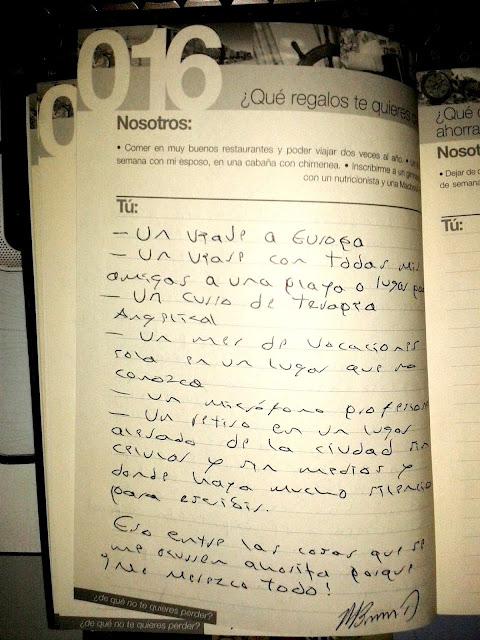 016
¿Qué regalos te quieres
Nosotros:
• Comer en muy buenos restaurantes y poder viajar dos veces al año. •
semana con mi esposo, en una cabaña con chimenea. • Inscribirme a un
con un nutricionista y una
Tú:
- Un viaje a Europa
- Un viaje con todos mis
amigos a una playa o lugar
- Un curso de terapia
Angelical
- Un mes de vacaciones
sola en un lugar que no
conozca
- Un micrófono profesional
- Un retiro en un lugar
alejado de la ciudad sin
celular y sin medios y
donde haya mucho silencio
para escribir.
Eso entre las cosas que se
me ocurren ahorita porque
¡Me merezco todo!
¿de qué no te quieres perder?
¿de qué no te quieres perder?
¿Qué
ahorra
Nosot
• Dejar de
de semana
Tú: